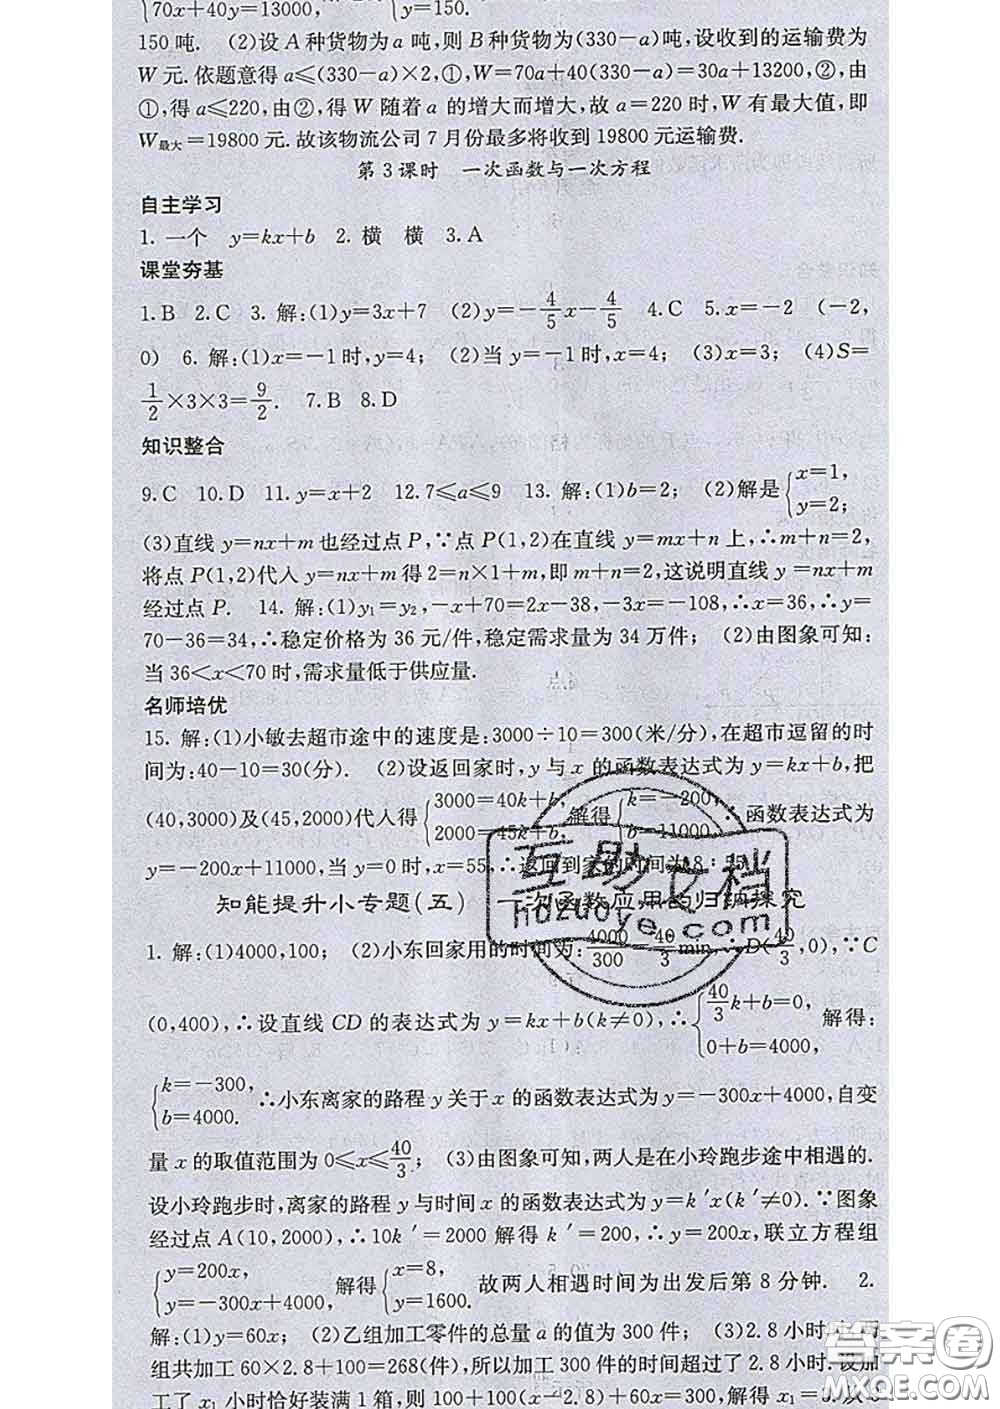 70x+40y=13000, y=150.
150吨. (2)设A种货物为a吨,则B种货物为(330-a)吨,设收到的运输费为
W元.依题意得a≤(330-a)×2,①,W=70a+40(330-a)=30a+13200,②,由
①,得a≤220,由②,得W随着a的增大而增大,故a=220时,W有最大值,即
W最大=19800元.故该物流公司7月份最多将收到19800元运输费.
第3课时 一次函数与一次方程
自主学习
1. 一个 y=kx+b 2. 横 横 3.A
课堂夯基
1.B 2.C 3. 解:(1)y=3x+7 (2)y=-4/5x-4/5 4.C 5.x=-2 (-2,
0) 6. 解:(1)x=-1时,y=4; (2)当y=-1时,x=4; (3)x=3; (4)S=
1/2×3×3=9/2. 7.B 8.D
知识整合
9.C 10.D 11.y=x+2 12.7≤a≤9 13. 解:(1)b=2; (2)解是{x=1, y=2;
(3)直线y=nx+m也经过点P,∵点P(1,2)在直线y=mx+n上,∴m+n=2,
将点P(1,2)代入y=nx+m得2=n×1+m,即m+n=2,这说明直线y=nx+m
经过点P. 14. 解:(1)y₁=y₂,-x+70=2x-38,-3x=-108,∴x=36,∴y=
70-36=34,∴稳定价格为36元/件,稳定需求量为34万件; (2)由图象可知:
当36<x<70时,需求量低于供应量.
名师培优
15. 解:(1)小敏去超市途中的速度是:3000÷10=300(米/分),在超市逗留的时
间为:40-10=30(分). (2)设返回家时,y与x的函数表达式为y=kx+b,把
(40,3000)及(45,2000)代入得{3000=40k+b, 2000=45k+b, 解得{k=-200, b=11000, ∴函数表达式为
y=-200x+11000,当y=0时,x=55,∴返回到家的时间为8:55.
知能提升小专题(五) 一次函数应用的归纳探究
1. 解:(1)4000,100; (2)小东回家用的时间为:4000/300=40/3min,∴D(40/3,0),∵C
(0,400),∴设直线CD的表达式为y=kx+b(k≠0),∴{40/3k+b=0, 0+b=4000, 解得:
{k=-300, b=4000. ∴小东离家的路程y关于x的函数表达式为y=-300x+4000,自变
量x的取值范围为0≤x≤40/3; (3)由图象可知,两人是在小玲跑步途中相遇的.
设小玲跑步时,离家的路程y与时间x的函数表达式为y=k′x(k′≠0).∵图象
经过点A(10,2000),∴10k′=2000解得k′=200,∴y=200x,联立方程组
{y=200x, y=-300x+4000, 解得{x=8, y=1600. 故两人相遇时间为出发后第8分钟. 2.
解:(1)y=60x; (2)乙组加工零件的总量a的值为300件; (3)2.8小时时两
组共加工60×2.8+100=268(件),所以加工300件的时间超过了2.8小时.设加
工了x₁小时恰好装满1箱,则100+100(x-2.8)+60x=300,解得x₁=3.从3
互助文档
hdzuoye.com
答案圈